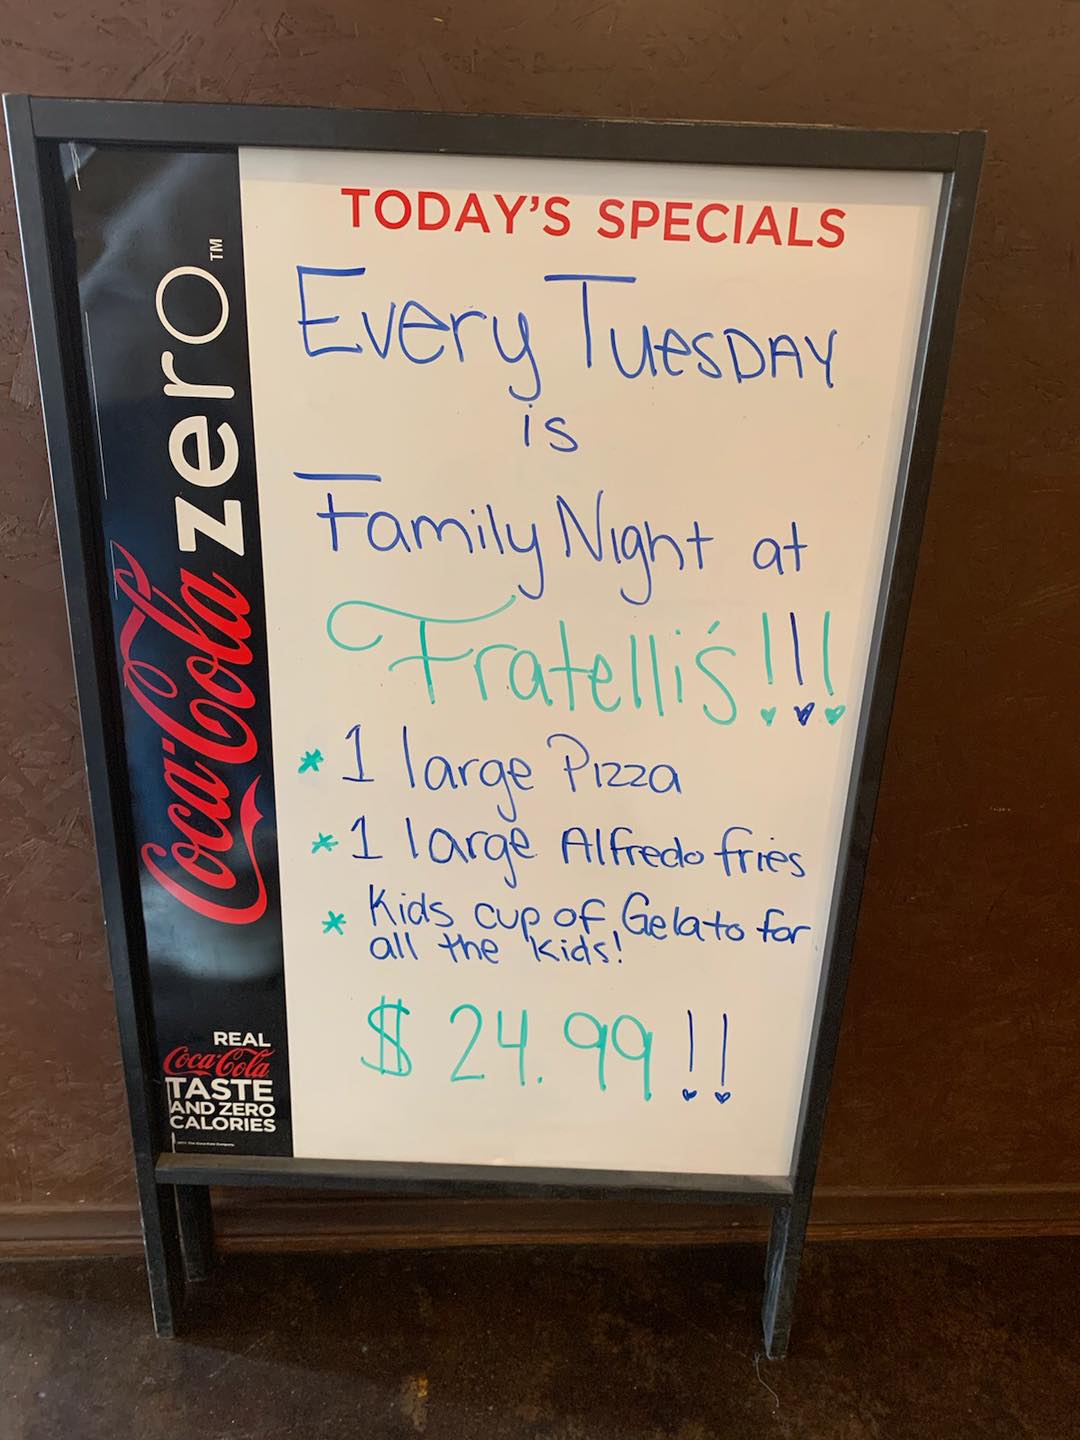 TODAY'S SPECIALS
Every TuesDAY
is
Family Night at
Fratelli's!!!
* 1 large Pizza
* 1 large Alfredo fries
* Kids cup of Gelato for
all the kids!
$ 24.99!!
Coca-Cola zero™
REAL
Coca-Cola
TASTE
AND ZERO
CALORIES